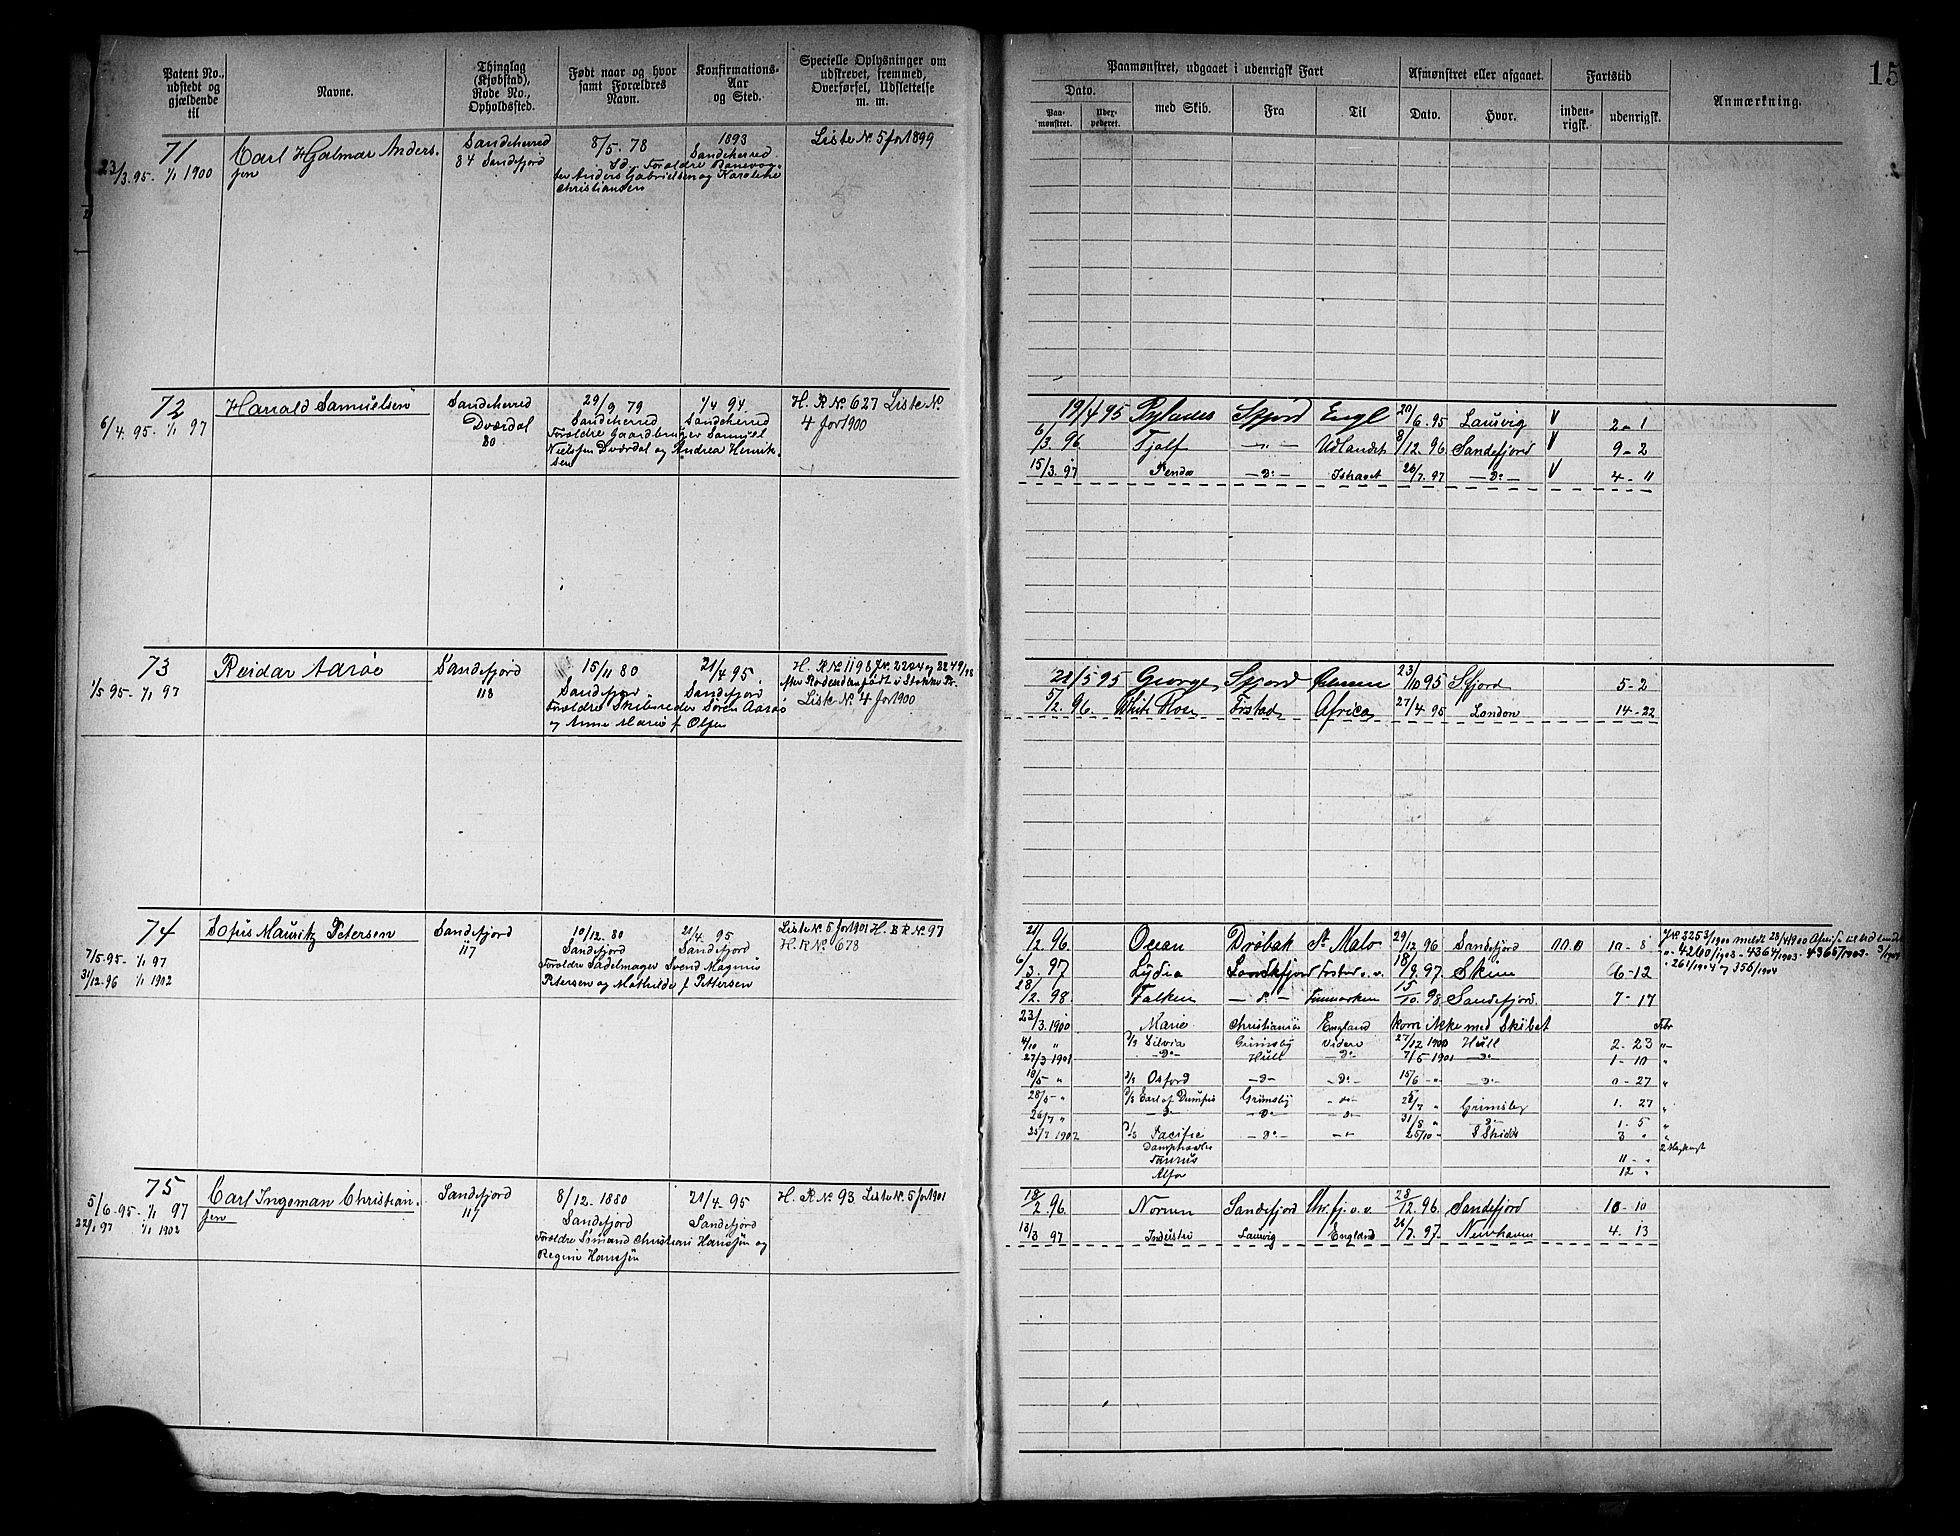 15
Patent No., udstedt og gjældende til
Navne.
Thinglag (Kjøbstad), Rode No., Opholdssted.
Født naar og hvor samt Forældres Navn.
Konfirmations-Aar og Sted.
Specielle Oplysninger om udskrevet, fremmed, Overførsel, Udslettelse m. m.
Paamønstret, udgaaet i udenrigsk Fart
Afmønstret eller afgaaet.
Fartstid
Anmærkning.
Dato.
med Skib.
Fra
Til
Dato.
Hvor.
inden-rigsk.
udenrigsk.
Paa-mønstret.
71
23/3.95. - 1/1 1900
Carl Hjalmar Anders-
sen
Sandeherred
84 Sandefjord
8/5. 78
Sd. Forældre Banevog-
ter Anders Gabrielsen og Karoline
Christiansen
1893
Sandeherred
Liste No. 5 for 1899
72
6/4. 95. - 1/1 97
Harald Samuelsen
Sandeherred
Dværdal
80
29/9 79
Sandeherred
Forældre Gaardbruger Samuel
Nielssen Dværdal og Andrea Henrik-
sen
1/4 94
Sandeherred
H. R No. 627 Liste No.
4 for 1900
19/4 95 Rylandes Sfjord Engl 20/6.95 Laurvig V 2-1
6/3. 96 Fjalf -"- Udlandet 8/12.96 Sandefjord V 9-2
15/3.97 -Do- Ishavet 26/7.97 -Do- V 4-"
73
1/5 95- 1/1 97
Reidar Aarøe
Sandefjord
118
15/11 80
Sandefjord
Forældre Skibsreder Søren Aarøe
og Anne Marie f Olsen
21/4 95
Sandefjord
H. R No 1198 Jr. 2224 og 2249/98
Liste No. 4 for 1900
22/5 95 George Sfjord 23/10 95 Sfjord 5-2
5/2. 96. White Rose Frstad Africa 27/4 95 London 14-22
74
7/5-95- 1/1 97
31/12.96 1/1 1902
Sofus Mauritz Petersen
Sandefjord
117
10/12. 80
Sandefjord
Forældre Sadelmager Svend Magnus
Petersen og Mathilde f Pettersen
21/4. 95
Sandefjord
Liste No. 5 for 1901 H. B R No. 97
H. R No. 678
21/2 96. Ocean Drøbak St Malo 29/12 96 Sandefjord 10-8
6/3. 97 Lydia 18/9. 97. Skien 6-12
28/2. 98. Falken -Do- Finmarken 15/10. 98 Sandefjord. 7-17
23/3. 1900 Marie Christiania England kom ikke med Skibet
4/10 " D/S Silvia Grimsby videre 27/12 1900 Hull 2-23
27/3 1901 -Do- Hull -Do- 7/5 1901 -Do- 1-10
18/5- " D/S Oxford -Do- -Do- 15/6 -"- -Do- 0-27
28/5- " Grimsby -Do- 25/7 " Grimsby 1. 27
26/7 " -Do- -Do- -Do- 31/8 " -Do- 1. 5
25/7 1902 D/S Pacific -Do- 25/10- 3 "
Taurus 11 - "
Alfa 12 "
JNo 2253/1900 meldt 28/4 1900
4260/1903 - 4364/1903 - 4367/1903
261/1904 og 355/1904
75
5/6-95- 1/1 97
22/1 97 1/1 1902
Carl Ingeman Christian-
sen
Sandefjord
117
8/12. 1880
Sandefjord
Forældre Sømand Christian Hanssen og
Regine Hanssen
21/4. 95
Sandefjord
H. R No. 93 Liste No. 5 for 1901
18/2. 96. Nornen Sandefjord 28/12. 96. Sandefjord 10-10
18/3 97 Laurvig England 26/7. 97. Newhaven 4. 13